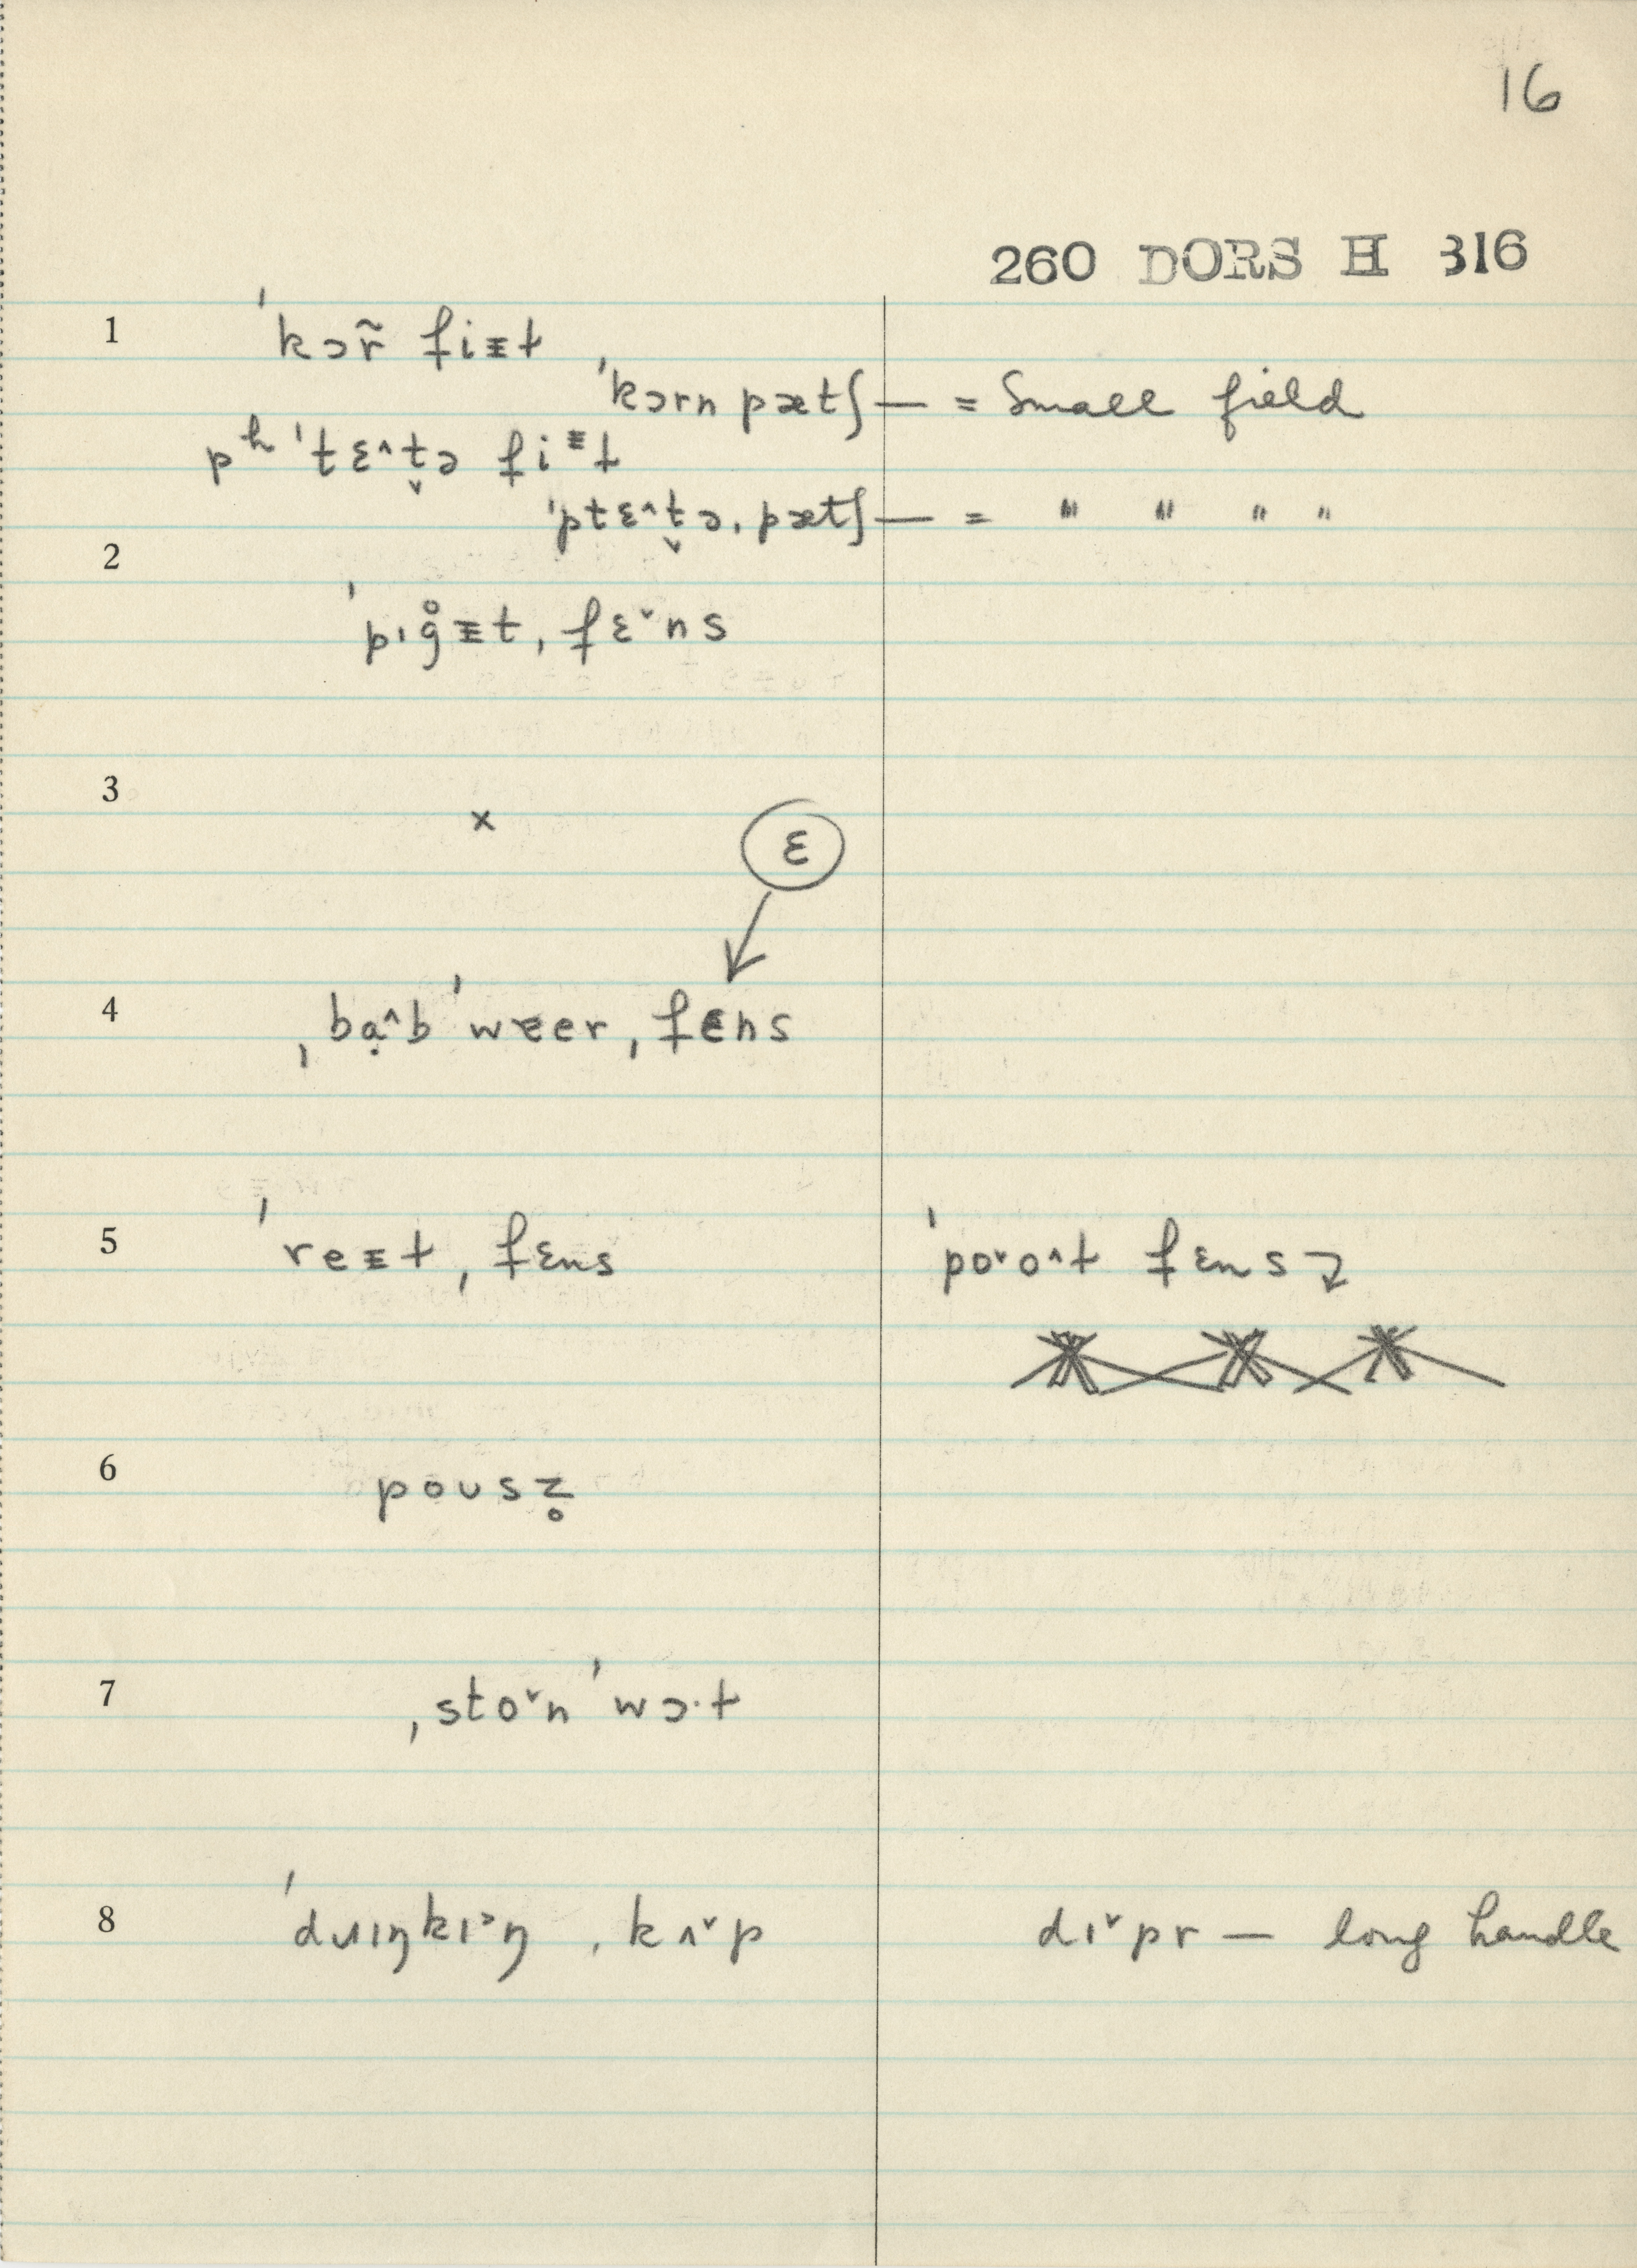 16
260 DORS H 316
1 ˈkɔr̃ fiᵻɫ
ˈkɔrn pætʃ — = Small field
pʰˈtɛ^t̬ə fiᵻɫ
ˈptɛ^t̬əˌpætʃ — = " " " "
2
ˈpɪg̊ᵻtˌfɛˇns
3
×
ɛ
4 ˌbạ^bˈwɐerˌfɛns
5 ˈreᵻɫˌfɛns ˈpoˇo^ɫ fɛns
6 poʊsz̥
7 ˌstoˇnˈwɔ·ɫ
8 ˈdɹɪŋkɪ˃ŋ ˌkʌˇp dɪˇpr — long handle